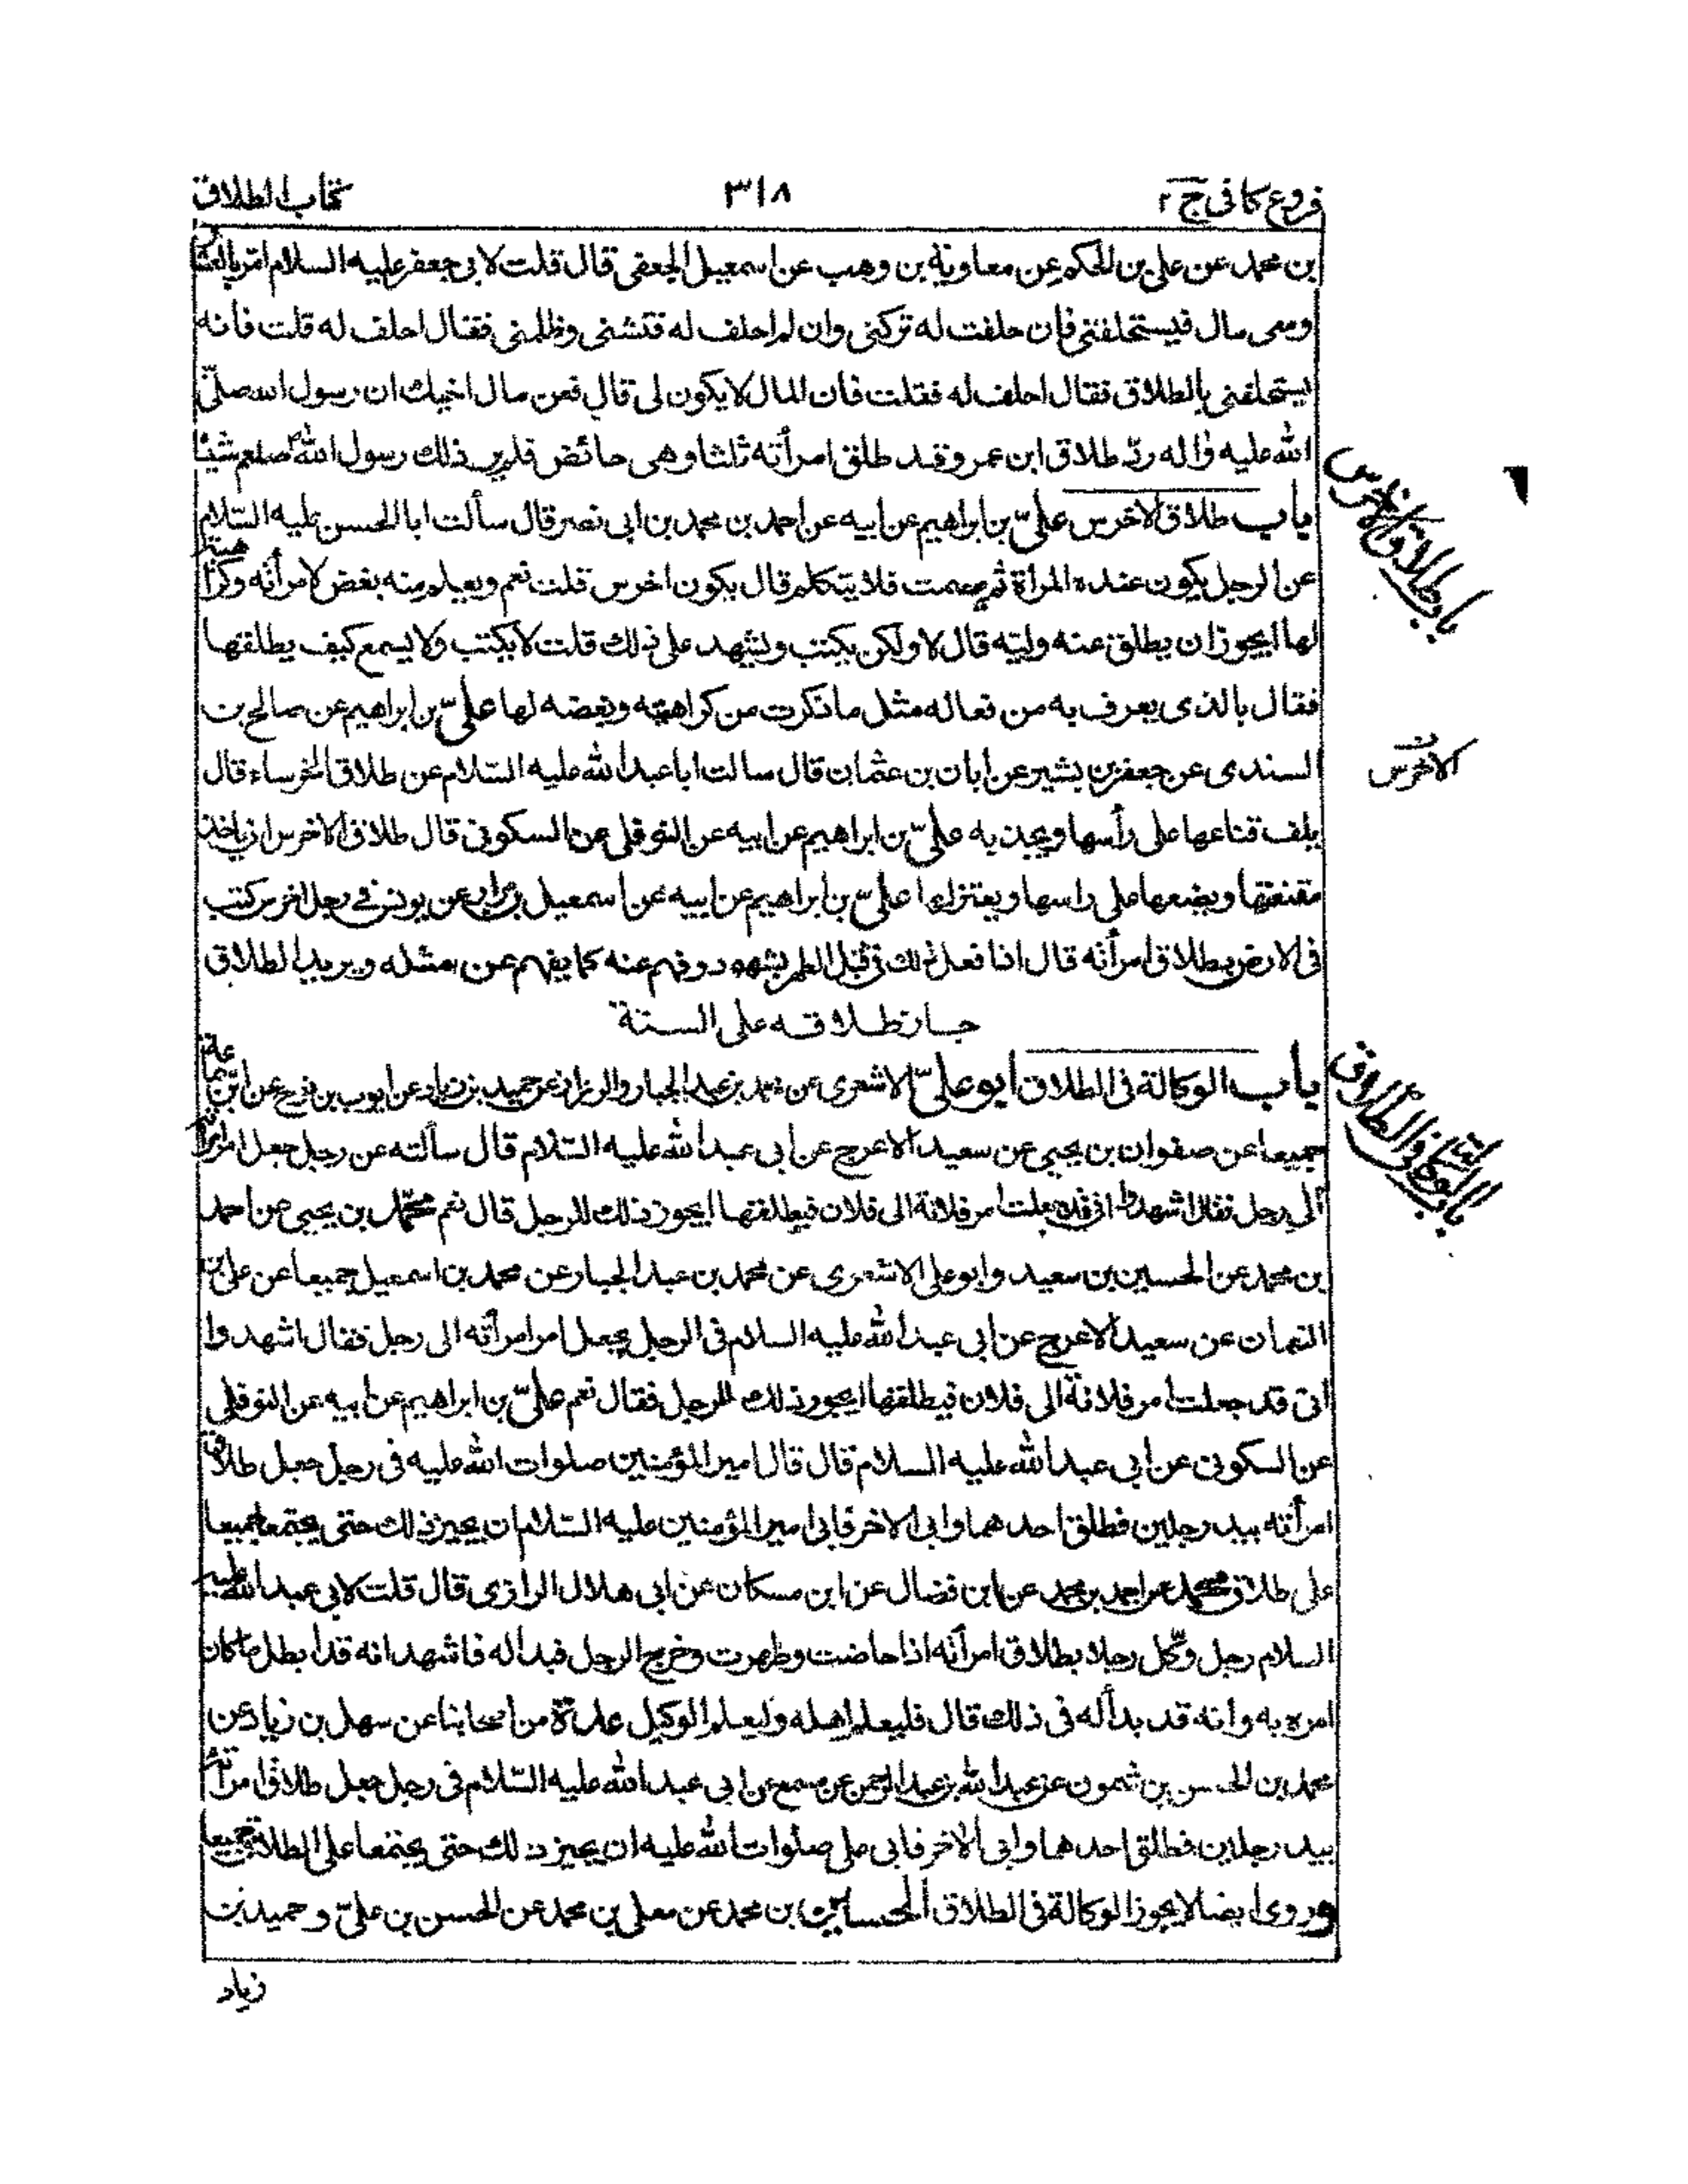 فروع كافى ج ٢
٣١٨
كتاب الطلاق
بن محمد عن على بن الحكم عن معاوية بن وهب عن اسمعيل الجعفى قال قلت لابى جعفر عليه السلام امر بالعشار
ومعى مال فيستحلفنى فان حلفت له تركنى وان لم احلف له فتشنى وظلمنى فقال احلف له قلت فانه
يستحلفنى بالطلاق فقال احلف له فقلت فان المال لا يكون لى قال فعن مال اخيك ان رسول الله صلّى
الله عليه واله ردّ طلاق ابن عمر وقد طلق امرأته ثلثا وهى حائض فلم ير ذلك رسول الله صلعم شيئا
باب طلاق الاخرس علىّ بن ابراهيم عن ابيه عن احمد بن محمد بن ابى نصر قال سألت ابا الحسن عليه السّلام
عن الرجل يكون عنده المراة ثم يصمت فلا يتكلم قال يكون اخرس قلت نعم ويعلم منه بغض لامرأته وكراهته
لها ايجوز ان يطلق عنه وليّه قال لا ولكن يكتب ويشهد على ذلك قلت لا يكتب ولا يسمع كيف يطلقها
فقال بالذى يعرف به من فعاله مثل ما ذكرت من كراهته وبغضه لها علىّ بن ابراهيم عن صالح بن
السندى عن جعفر بن بشير عن ابان بن عثمان قال سالت ابا عبد الله عليه السّلام عن طلاق الخرساء قال
يلف قناعها على رأسها ويجذبه علىّ بن ابراهيم عن ابيه عن النوفلى عن السكونى قال طلاق الاخرس ان ياخذ
مقنعتها ويضعها على راسها ويعتزلها علىّ بن ابراهيم عن ابيه عن اسمعيل بن مرار عن يونس فى رجل اخرس كتب
فى الارض بطلاق امرأته قال اذا فعل ذلك فى قبل الطهر بشهود وفهم عنه كما يفهم عن مثله ويريد الطلاق
جاز طلاقه على السنة
باب الوكالة فى الطلاق ابو علىّ الاشعرى عن محمد بن عبد الجبار والرزاز عن حميد بن زياد عن ايوب بن نوح عن ابن سماعة
جميعا عن صفوان بن يحيى عن سعيد الاعرج عن ابى عبد الله عليه السّلام قال سألته عن رجل جعل امر امرأته
الى رجل فقال اشهدوا انى قد جعلت امر فلانة الى فلان فيطلقها ايجوز ذلك للرجل قال نعم محمّد بن يحيى عن احمد
بن محمد عن الحسين بن سعيد وابو على الاشعرى عن محمد بن عبد الجبار عن محمد بن اسمعيل جميعا عن على بن
النعمان عن سعيد الاعرج عن ابى عبد الله عليه السلام فى الرجل يجعل امر امرأته الى رجل فقال اشهدوا
انى قد جعلت امر فلانة الى فلان فيطلقها ايجوز ذلك للرجل فقال نعم علىّ بن ابراهيم عن ابيه عن النوفلى
عن السكونى عن ابى عبد الله عليه السلام قال قال امير المؤمنين صلوات الله عليه فى رجل جعل طلاق
امرأته بيد رجلين فطلق احدهما وابى الاخر فابى امير المؤمنين عليه السّلام ان يجيز ذلك حتى يجتمعا جميعا
على طلاق محمد عن احمد بن محمد عن ابن فضال عن ابن مسكان عن ابى هلال الرازى قال قلت لابى عبد الله عليه
السلام رجل وكّل رجلا بطلاق امرأته اذا حاضت وطهرت وخرج الرجل فبدا له فاشهد انه قد ابطل ما كان
امره به وانه قد بدأ له فى ذلك قال فليعلم اهله وليعلم الوكيل عدة من اصحابنا عن سهل بن زياد عن
محمد بن الحسن بن شمون عن عبد الله بن عبد الرحمن عن مسمع عن ابى عبد الله عليه السّلام فى رجل جعل طلاق امرأته
بيد رجلين فطلق احدهما وابى الاخر فابى على صلوات الله عليه ان يجيز ذلك حتى يجتمعا على الطلاق جميعا
وروى ايضا لا يجوز الوكالة فى الطلاق الحسين بن محمد عن معلى بن محمد عن الحسن بن علىّ وحميد بن
زياد
باب طلاق الاخرس
الاخرس
باب الوكالة فى الطلاق